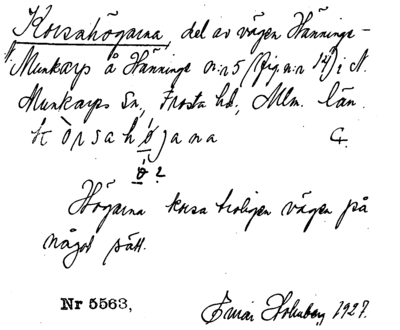 Korsahögarna, del av vägen Hänninge-
Munkarp å Hänninge n:r 5 (fig. n:r 14) i N.
Munkarps Sn, Frosta hd, Mlm. län.
kòrsahø̀jana C.
ö ?
Högarna korsa troligen vägen på
något sätt.
Nr 5563, Einar Holmberg 1927.